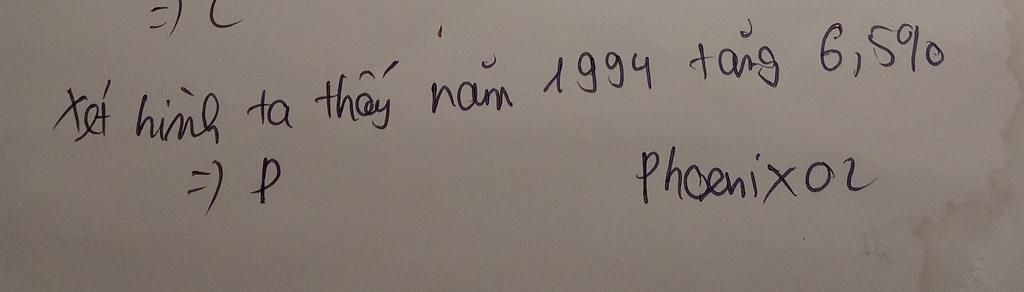 =) C
Xét hình ta thấy năm 1994 tăng 6,5%
=) D
Phoenix02